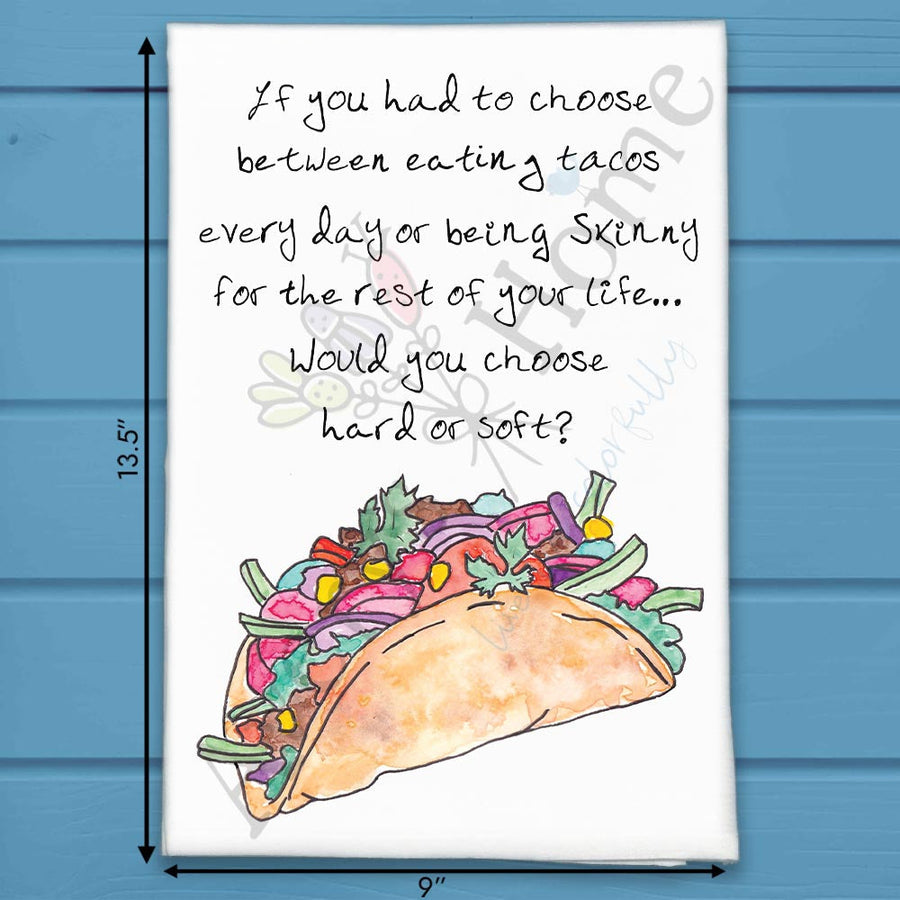 If you had to choose
between eating tacos
every day or being Skinny
for the rest of your life...
Would you choose
hard or soft?
13.5"
9"
Home